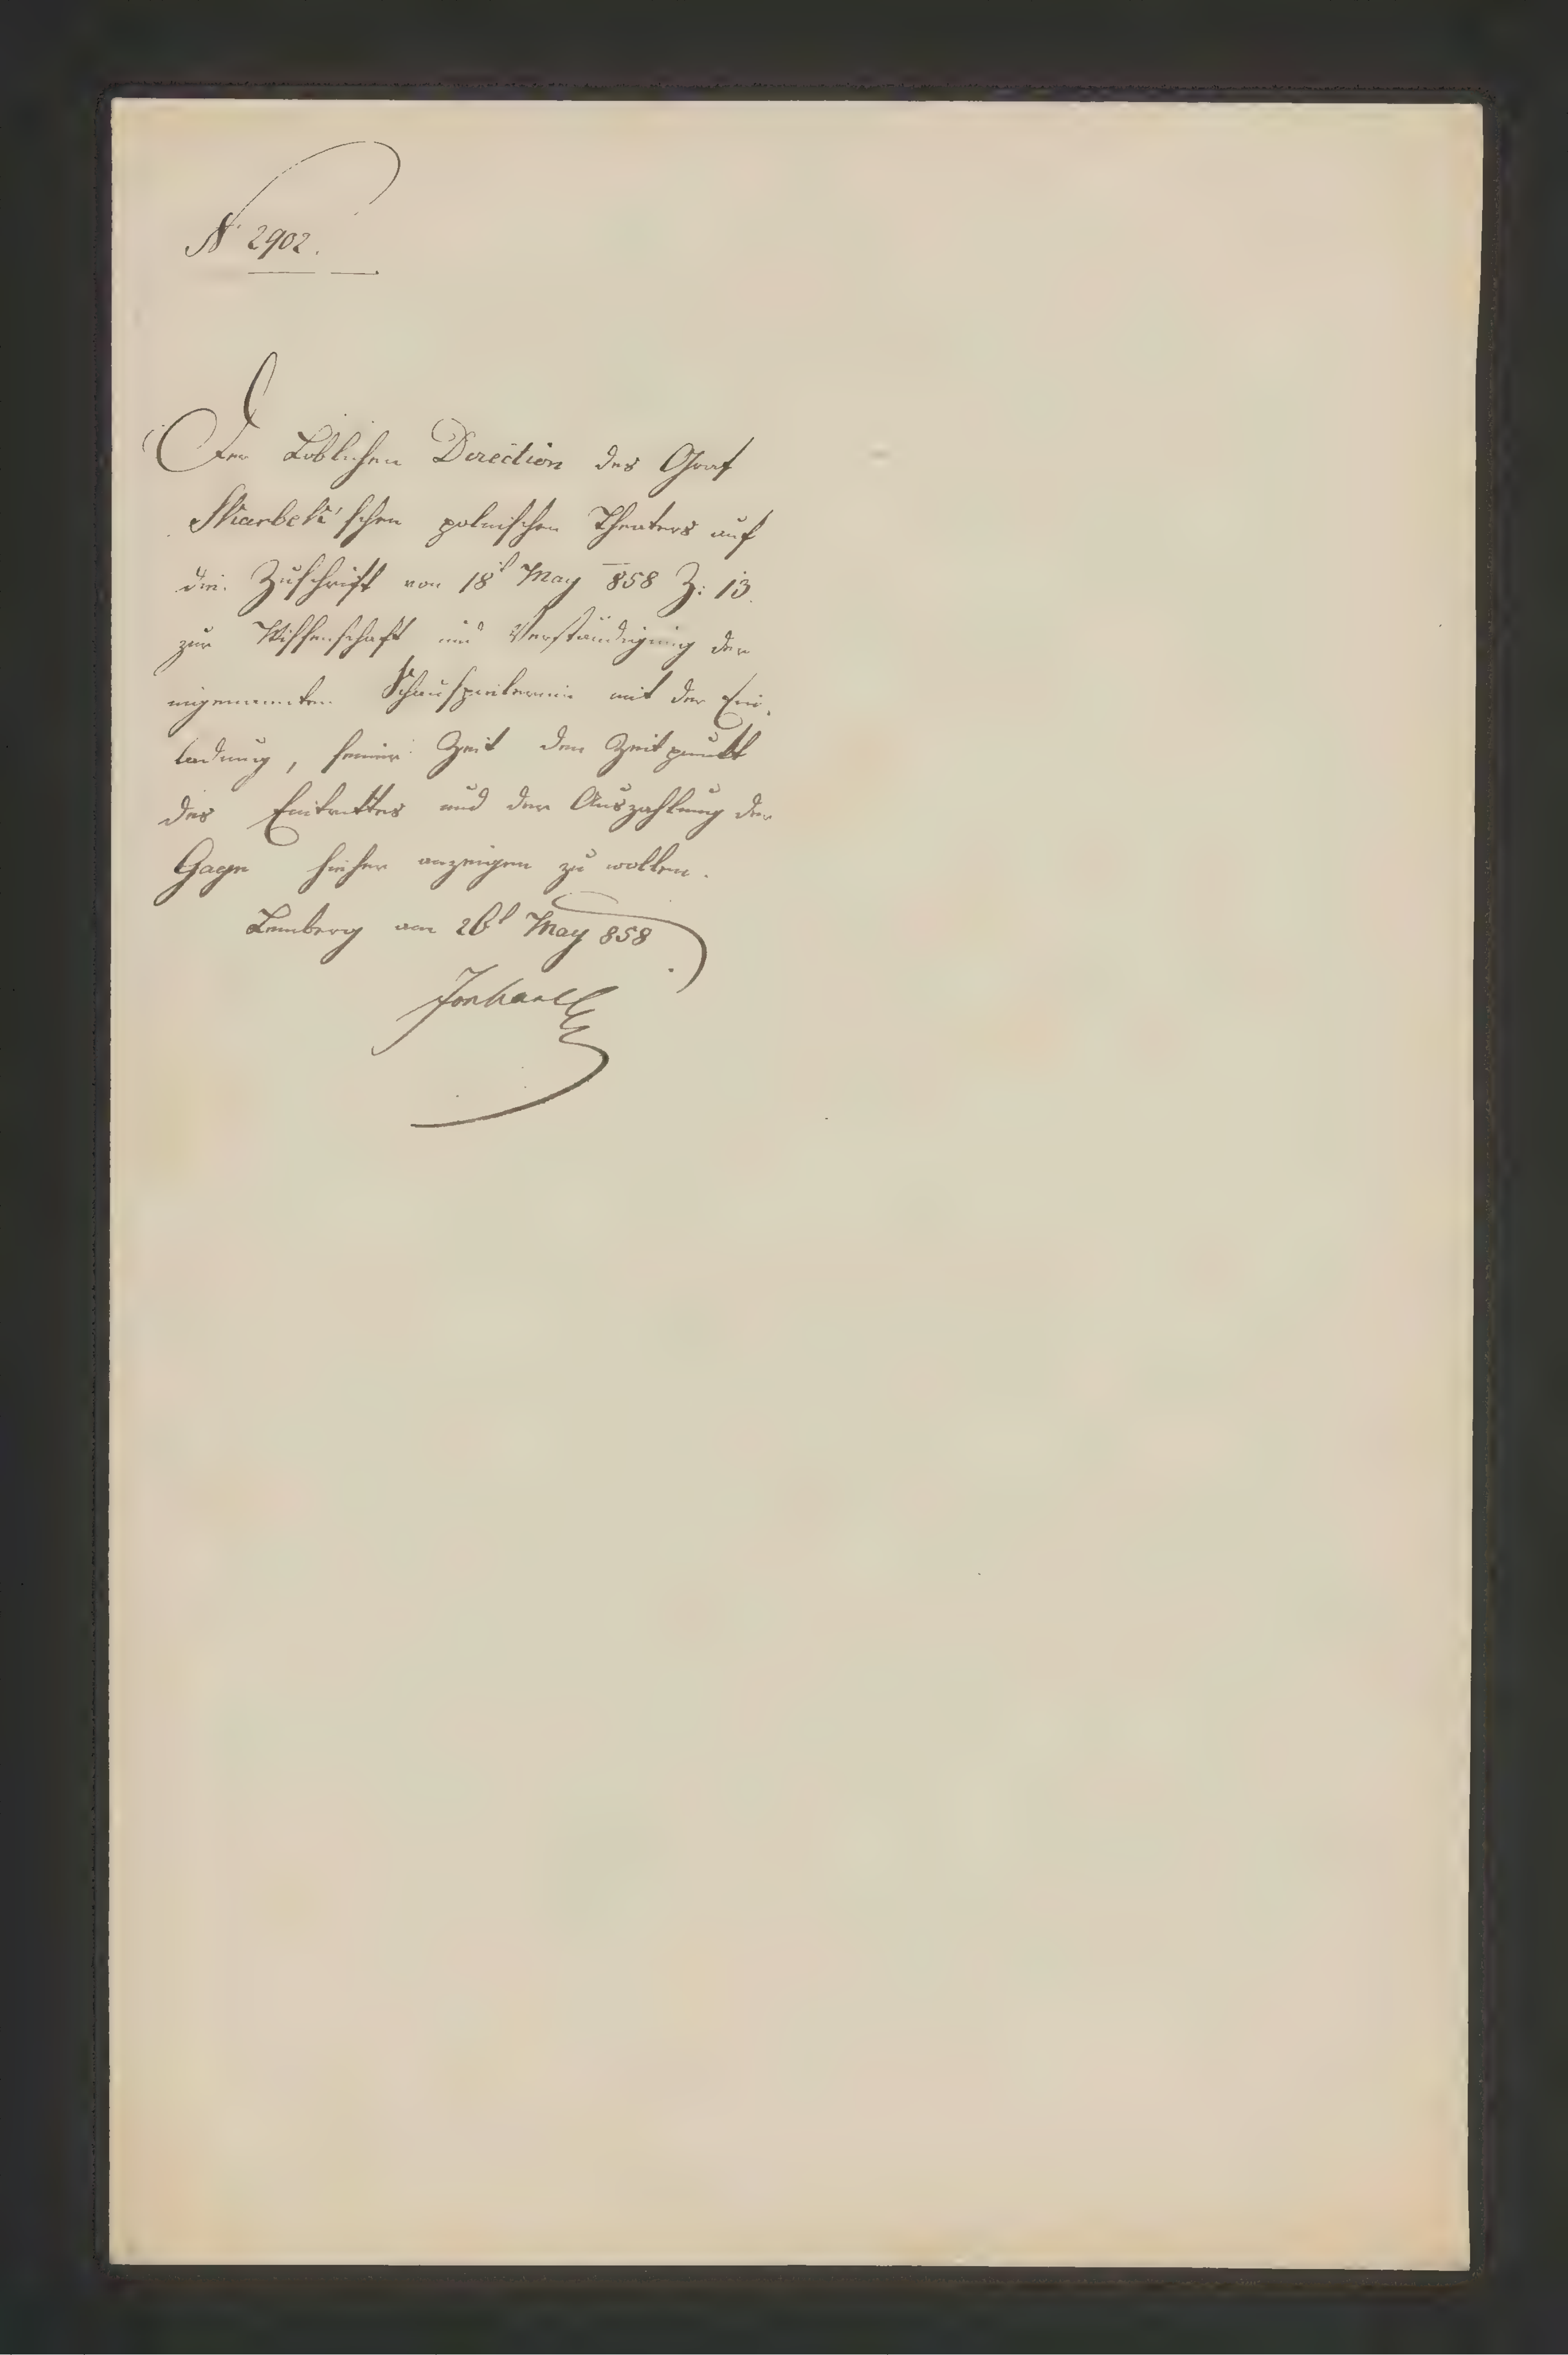 N 2902.
Der Löblichen Direction des Graf
Skarbek'schen polnischen Theaters auf
die Zuschrift von 18t May 858 Z: 13.
zur Wissenschaft und Verständigung der
Schauspielerin mit der Ein-
ladung, seiner Zeit den Zeitpunkt
des Eintrittes und der Auszahlung der
Gage hieher anzeigen zu wollen.
Lemberg am 26t May 858